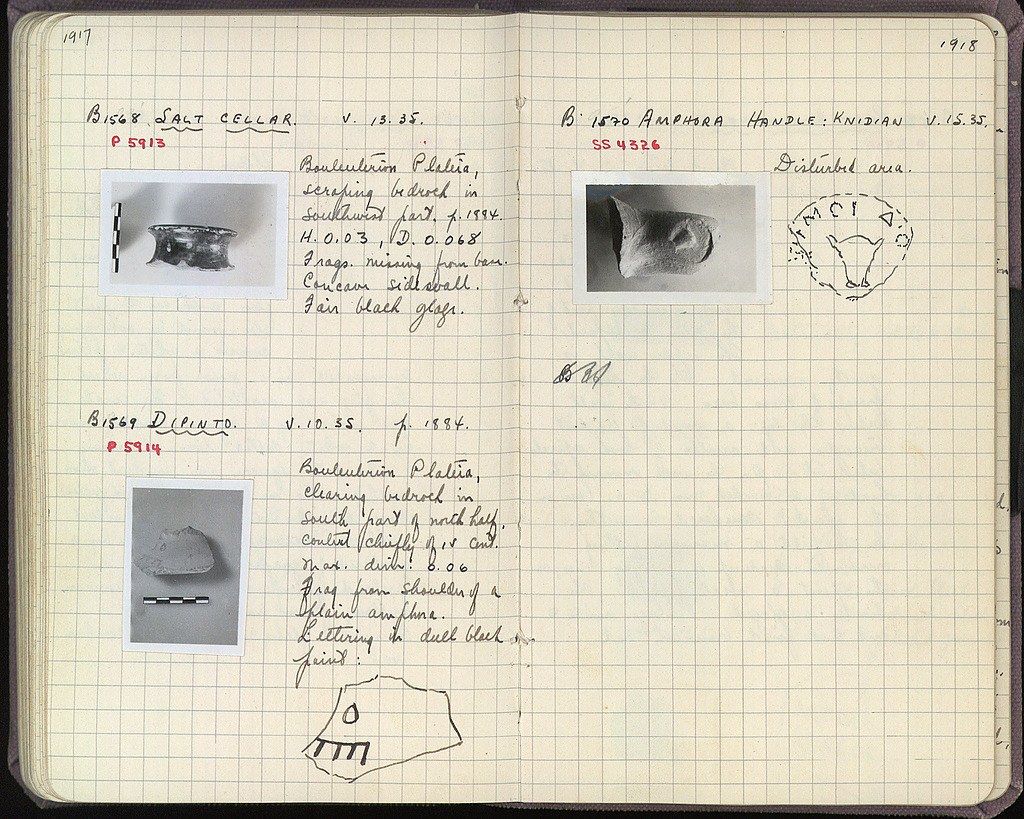 1917
B1568 SALT CELLAR. V. 13.35.
P 5913
Bouleuterion Plateia,
scraping bedrock in
southwest part. p. 1884.
H. 0.03, D. 0.068
Frags. missing from base.
Concave sidewall.
Fair black glaze.
B1569 DIPINTO. V. 10. 35. p. 1884.
P 5914
Bouleuterion Plateia,
clearing bedrock in
south part of north half,
context chiefly of IV cent.
Max. dim: 0.06
Frag from shoulder of a
plain amphora.
Lettering in dull black
paint:
1918
B 1570 AMPHORA HANDLE: KNIDIAN V. 15.35.
SS 4326
Disturbed area.